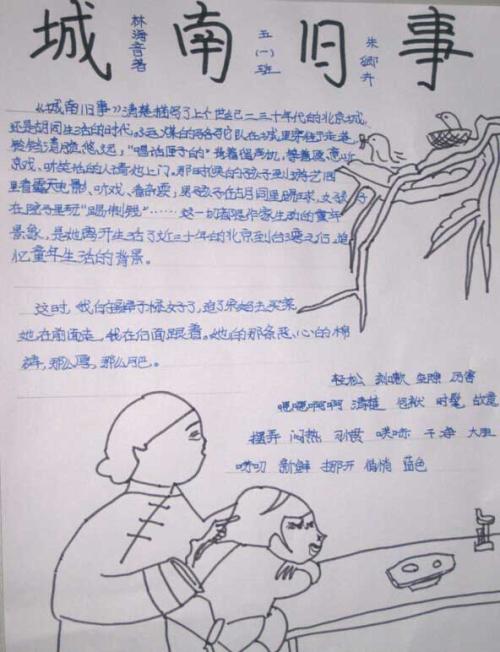 城南旧事
林海音著
五(一)班
《城南旧事》清楚描写了上个世纪二三十年代的北京城,
还是胡同生活的时代。运煤的骆驼队在城里穿街走巷,
铃铛清脆悠远,"唱话匣子的"背着留声机,等着愿意听
京戏、听笑话的人请他上门。那时候的孩子到游艺园
里看露天电影、听戏、看杂耍;男孩子在胡同里踢球,女孩子
在院子里玩"踢制钱"……这一切都是作家生动的童年
景象,是她离开生活了近二十年的北京到台湾之后,追
忆童年生活的背景。
这时,我的辫子梳好了,追了宋妈去买菜,
她在前面走,我在后面跟着。她的那条恶心的棉
裤,那么厚,那么肥。
轻松 咳嗽 厉害
嗯嗯啊啊 清楚 包袱 时髦 故意
摆弄 闷热 习惯 干净 大胆
唠叨 新鲜 挪开 俏悄 蓝色